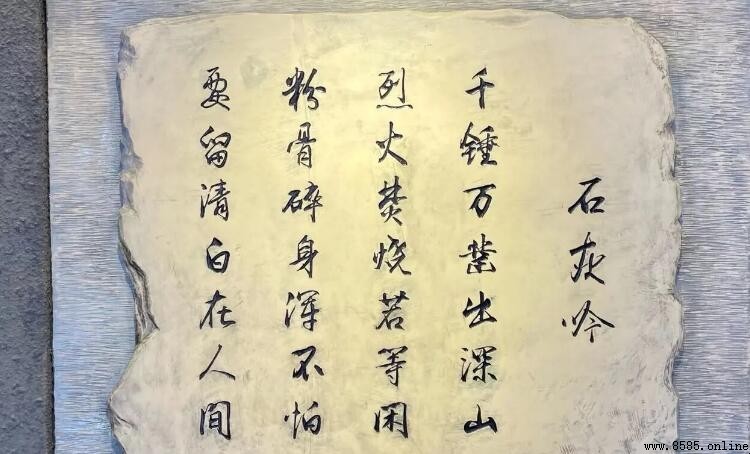 石灰吟
千锤万凿出深山
烈火焚烧若等闲
粉骨碎身浑不怕
要留清白在人间
www.8585.online